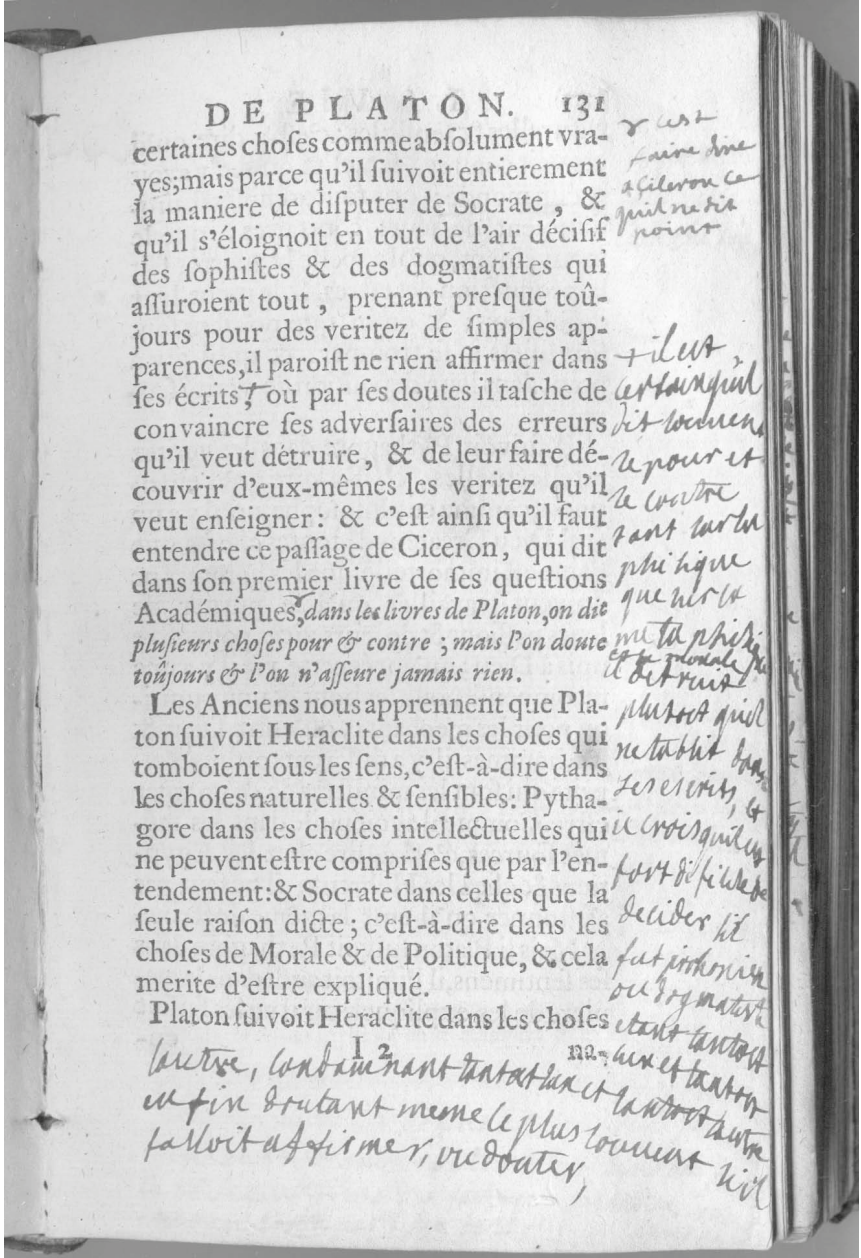 DE PLATON. 131
certaines choſes comme abſolument vra-
yes; mais parce qu'il ſuivoit entierement
la maniere de diſputer de Socrate, &
qu'il s'éloignoit en tout de l'air déciſif
des ſophiſtes & des dogmatiſtes qui
aſſuroient tout, prenant preſque toû-
jours pour des veritez de ſimples ap-
parences, il paroiſt ne rien affirmer dans
ſes écrits, + où par ſes doutes il taſche de
convaincre ſes adverſaires des erreurs
qu'il veut détruire, & de leur faire dé-
couvrir d'eux-mêmes les veritez qu'il
veut enſeigner: & c'eſt ainſi qu'il faut
entendre ce paſſage de Ciceron, qui dit
dans ſon premier livre de ſes queſtions
Académiques, dans les livres de Platon, on dit
pluſieurs choſes pour & contre; mais l'on doute
toûjours & l'on n'aſſeure jamais rien.
Les Anciens nous apprennent que Pla-
ton ſuivoit Heraclite dans les choſes qui
tomboient ſous-les ſens, c'eſt-à-dire dans
les choſes naturelles & ſenſibles: Pytha-
gore dans les choſes intellectuelles qui
ne peuvent eſtre compriſes que par l'en-
tendement: & Socrate dans celles que la
ſeule raiſon dicte; c'eſt-à-dire dans les
choſes de Morale & de Politique, & cela
merite d'eſtre expliqué.
Platon ſuivoit Heraclite dans les choſes
I 2 na-
cest
faire dire
a Ciceron ce
quil ne dit
point
+ il est
certain quil
dit souvent
le pour et
le contre
tant sur la
phisique
que sur la
metaphisique
et la morale
il detruit
plutost quil
netablit dans
ses escrits, et
ie crois quil est
fort dificile de
decider sil
fut pirhonien
ou dogmatiste
etant tantost
lun et tantost
lautre, condamnant tantost lun et tantost lautre
enfin doutant meme le plus souvent sil
falloit affirmer, ou douter,